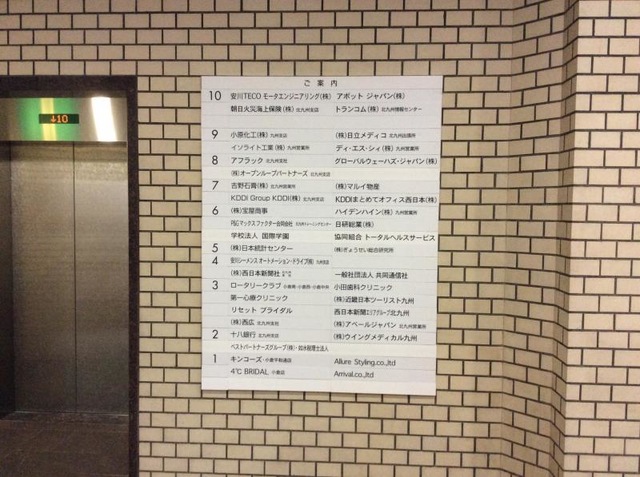 ↓10
ご案内
10 安川TECO モータエンジニアリング(株) アボット ジャパン(株)
朝日火災海上保険(株) 北九州支店 トランコム(株) 北九州情報センター
9 小原化工(株) 九州支店 (株)日立メディコ 北九州出張所
イソライト工業(株) 九州営業所 ディ・エス・シィ(株) 九州営業所
8 アフラック 北九州支社 グローバルウェーハズ・ジャパン(株)
(株)オープンループパートナーズ 北九州支店
7 吉野石膏(株) 北九州営業所 (株)マルイ物産
KDDI Group KDDI(株) 北九州支店 KDDIまとめてオフィス西日本(株)
6 (株)宝屋商事 ハイデンハイン(株) 九州営業所
P&Gマックスファクター合同会社 北九州トレーニングセンター 日研総業(株)
学校法人 国際学園 協同組合 トータルヘルスサービス
5 (株)日本統計センター (株)ぎょうせい総合研究所
4 安川シーメンス オートメーション・ドライブ(株) 九州支店
(株)西日本新聞社 一般社団法人 共同通信社
3 ロータリークラブ 小倉南・小倉西・小倉中央 小田歯科クリニック
第一心療クリニック (株)近畿日本ツーリスト九州
リセット ブライダル 西日本新聞エリアグループ北九州
(株)西広 北九州支社 (株)アベールジャパン 北九州営業所
2 十八銀行 北九州支店 (株)ウイングメディカル九州
ベストパートナーズグループ(株)・如水税理士法人
1 キンコーズ・小倉平和通店 Allure Styling.co.,ltd
4℃ BRIDAL 小倉店 Arrival.co.,ltd